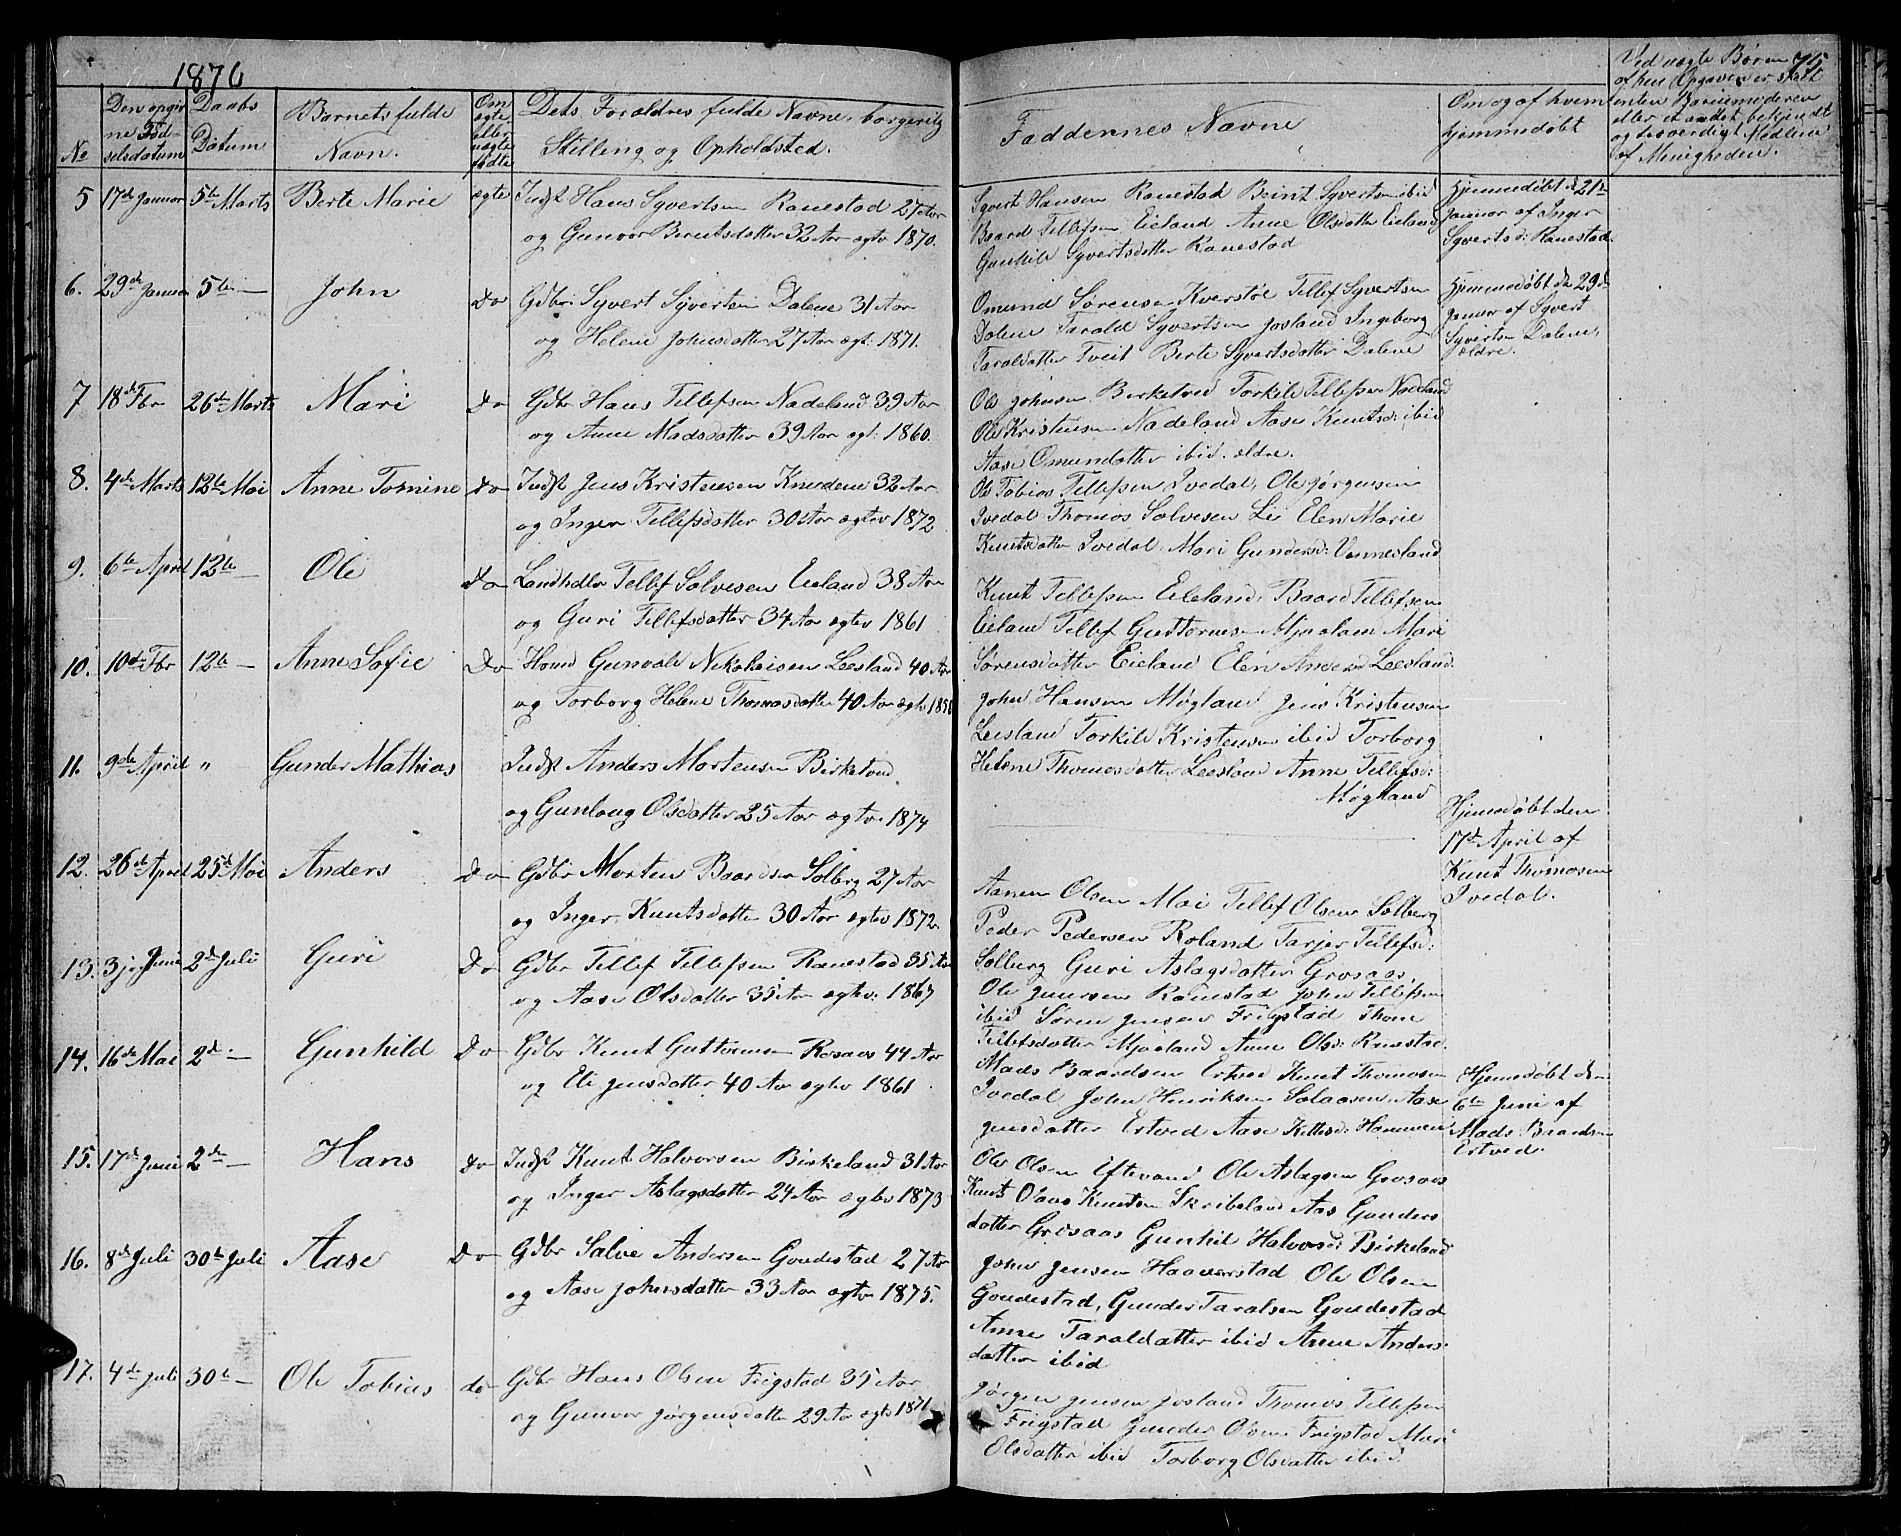 1876
75
No
Den opgivne Fødselsdatum
Daabs Datum
Barnets fulde Navn.
Om ægte eller uægte fødte
Dets Foraldres fulde Navne, borgerlig Stilling og Opholdsted.
Faddernes Navne
Om og af hvem hjemmedøbt
Ved uægte Børn
enten Barnemoderen
eller et andet bekjendt
og troverdigt Medlem
af Menigheden.
5 17de Januar 5te Marts Berte Marie ægte Indst Hans Syvertsen Ranestad 27 Aar
og Gunvor Berntsdatter 32 Aar ægtv 1870.
Syvert Hansen Ranestad Beint Syvertsen ibid
Baard Tellefsen Eieland Anne Olsdatter Eieland
Gunhild Syvertsdatter Ranestad
Hjemmedøbt d 21de
Januar af Inger
Syvertsd: Ranestad
6. 29de Januar 5te — John Do Gdbr: Syvert Syvertsen Dalene 31 Aar
og Helene Johnsdatter 27 Aar ægt: 1871.
Omund Sørensen Kverstøl Tellef Syvertsen
Dalene Tarald Syvertsen Josland Ingeborg
Taraldatter Tveit Berte Syvertsdatter Dalene
Hjemmedøbt den 29de
Januar af Syvert
Syvertsen Dalene,
ældre.
7 18de Fbr 26de Marts Mari Do Gdbr Hans Tellefsen Nadeland 39 Aar
og Anne Madsdatter 39 Aar ægt: 1860.
Ole Johnsen Birketved Torkild Tellefsen Nadeland
Ole Kristensen Nadeland Aase Knutsd: ibid
Aase Omundatter ibid. ældre.
8. 4de Marts 12te Mai Anne Tomine Do Indst Jens Kristensen Knudene 32 Aar
og Inger Tellefsdatter 30 Aar ægtev 1872
Ole Tobias Tellefsen Ivedal, Ole Jørgensen
Ivedal Thomas Salvesen Lie Elen Marie
Knutsdatter Ivedal. Mari Gundersd: Vennesland
9. 6te April 12te — Ole Do Landhdlr Tellef Salvesen Eieland 38 Aar
og Guri Tellefsdatter 34 Aar ægtev 1861
Knut Tellefsen Eieland, Baard Tellefsen
Eieland Tellef Guttormsen Mjaaland Mari
Sørensdatter Eieland Elen Andersd Leesland
10. 10de Fbr 12te — Anne Sofie Do Hmd Gunvald Nikolaisen Leesland 40 Aar
og Torborg Helene Thomasdatter 40 Aar ægtv
John Hansen Møgland Jens Kristensen
Leesland Torkild Kristensen ibid Torborg
Helene Thomasdatter Leesland Anne Tellefsd:
Møgland
11. 9de April " Gunder Mathias Indst Anders Mortensen Birketved
og Gunlaug Olsdatter 25 Aar ægtv. 1874
Hjemmedøbt den
17de April af
Knut Thomasen
Ivedal.
12. 26de April 25de Mai Anders Do Gdbr Morten Baardsen Solberg 27 Aar
og Inger Knutsdatter 30 Aar ægtev 1872.
Aanen Olsen Moi Tellef Olsen Solberg
Peder Pedersen Roland Tarjer Tellefsd:
Solberg Guri Aslagsdatter Grosaas,
13. 3je Juni 2de Juli Guri Do Gdbr Tellef Tellefsen Ranestad 35 Aar
og Aase Olsdatter 35 Aar ægtev: 1867
Ole Gunersen Ranestad John Tellefsen
ibid Søren Jensen Frigstad Thone
Tellefsdatter Mjaaland Anne Olsd: Ranestad.
14. 16de Mai 2de — Gunhild Do Gdbr Knut Guttormsen Rosaas 44 Aar
og Eli Jensdatter 40 Aar ægtev 1861
Mads Baardsen Ertved Knut Thomasen
Ivedal John Henriksen Solaasen Aase
Jensdatter Ertved Aase Kittelsd: Hammen
Hjemmedøbt den
6te Juni af
Mads Baardsen
Ertved.
15. 17de Juni 2de — Hans Do Indst Knut Halvorsen Birkeland 31 Aar
og Inger Aslagsdatter 24 Aar ægtev 1873
Ole Olsen Eftevand Ole Aslagsen Grosaas
Knut Olaus Knutsen Skribeland Aas Gunders
datter Grosaas Gunhil Halvorsd: Birkeland
16. 8de Juli 30te Juli Aase Do Gdbr Salve Andersen Goudestad 27 Aar
og Aase Johnsdatter 33 Aar ægtev 1875.
John Jensen Haaverstad Ole Olsen
Goudestad, Gunder Taralsen Goudestad
Anne Taraldatter ibid Anne Anders-
datter ibid
17. 4de Juli 30te — Ole Tobias do Gdbr Hans Olsen Frigstad 35 Aar
og Gunvor Jørgensdatter 29. Aar ægtv 1871
Jørgen Jensen Josland Thomas Tellefsen
Frigstad Gunder Olsen Frigstad Mari
Olsdatter ibid Torborg Olsdatter ibid